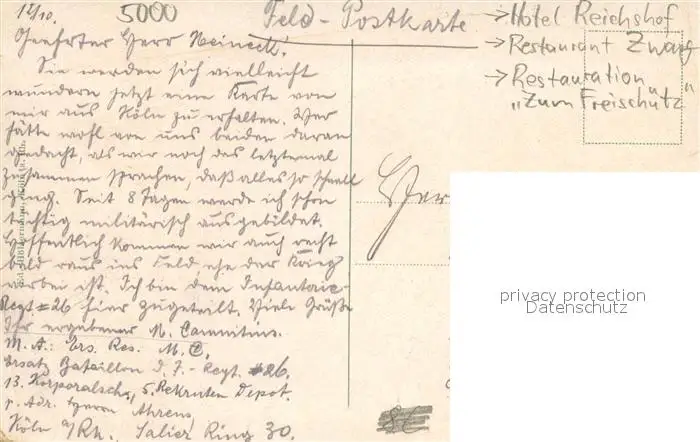 12/10.
5000
Feld-Postkarte
→Hotel Reichshof
→Restaurant Zwarg
→Restauration
„Zum Freischütz"
Geehrter Herr Meineck!
Sie werden sich vielleicht
wundern jetzt eine Karte von
mir aus Köln zu erhalten. Wer
hätte wohl von uns beiden daran
gedacht, als wir noch das letztemal
zusammen sprachen, daß alles so schnell
ging. Seit 8 Tagen werde ich schon
tüchtig militärisch ausgebildet.
Hoffentlich kommen wir auch recht
bald raus ins Feld, ehe der Krieg
vorbei ist. Ich bin dem Infanterie
Regt #26 hier zugeteilt. Viele Grüße
Ihr ergebener M.
M. A.: Ers. Res. M. C.
Ersatz Bataillon d. J.-Regt. #26.
13. Korporalsch., 5. Rekruten Depot.
p. Adr. Herrn Ahrens
Köln a/Rh., Salier Ring 30.
Herr
privacy protection
Datenschutz